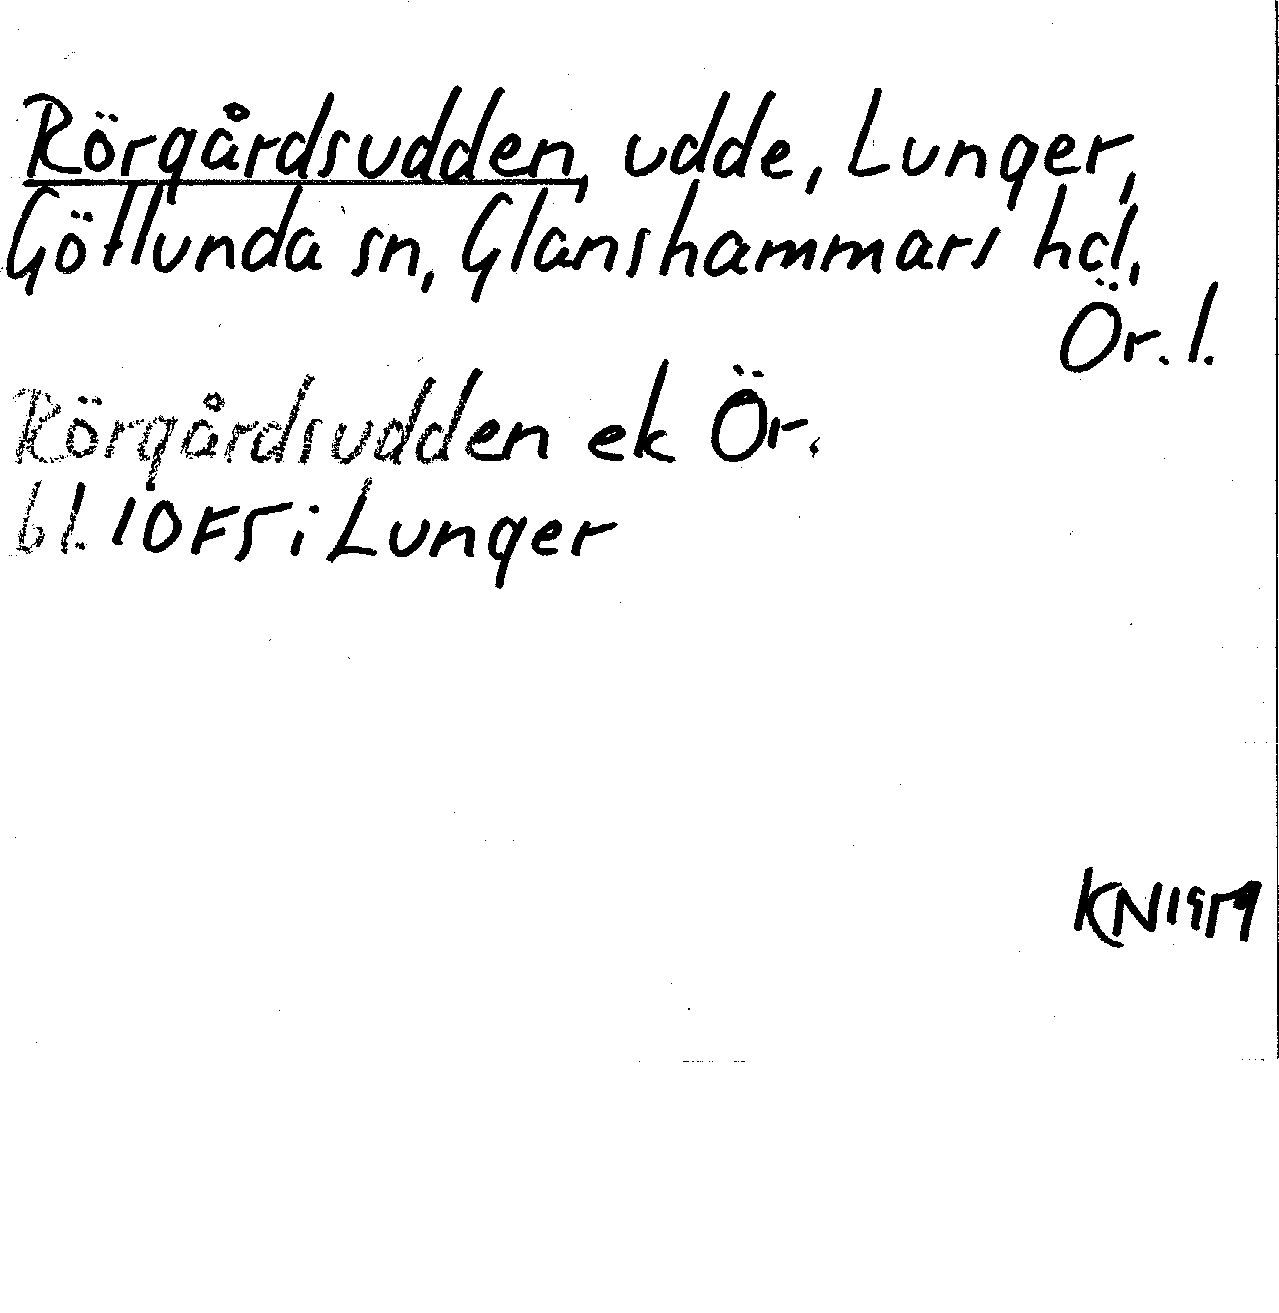 Rörgårdsudden, udde, Lunger,
Götlunda sn, Glanshammars hd,
Ör. l.
Rörgårdsudden ek Ör.
bl. 10F5i Lunger
KN 1979